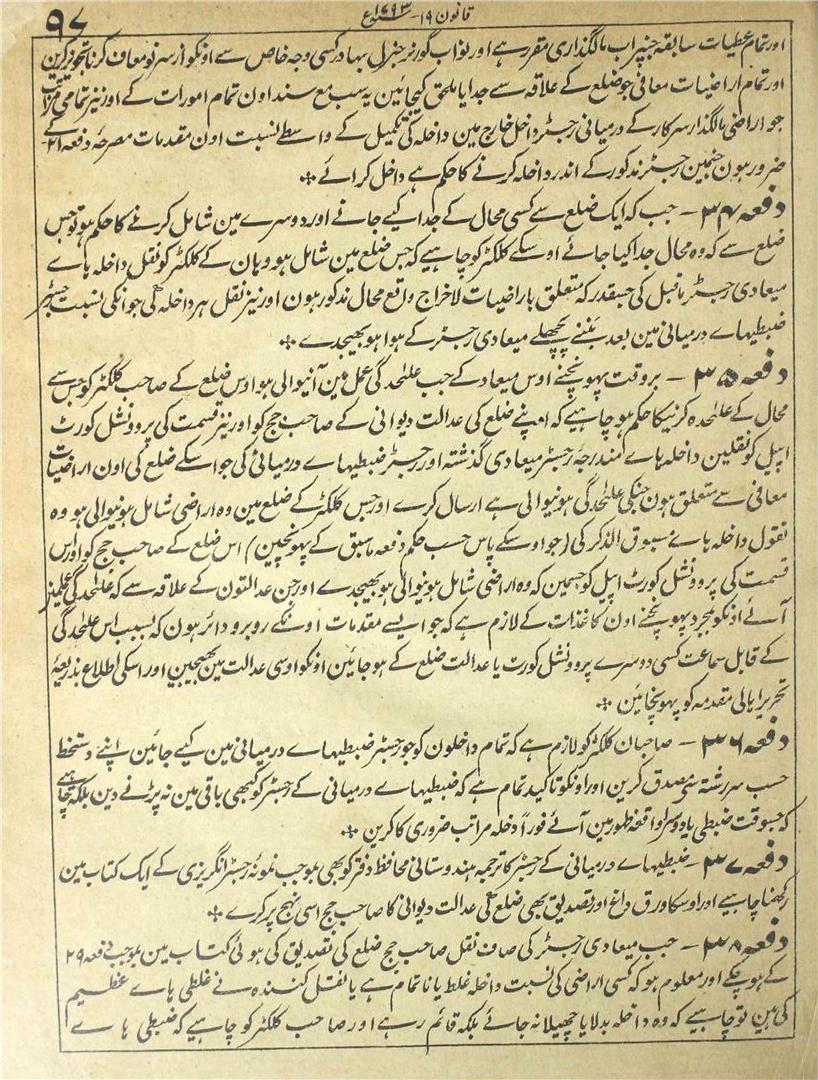 قانون ۱۹ - ۱۷۹۳ع
۹۷
اور تمام عطیات سابقہ جنپر اب مالگذاری مقرر ہے اور نواب گورنر جنرل بہادر کسی وجہ خاص سے اونکو از سر نو معاف کرنا تجویز کرین
اور تمام اراضیات معافی جو ضلع کے علاقہ سے جدا یا ملحق کیجائین یہ سب مع سند اون تمام امورات کے اور نیز تمامی
جو اراضی مالگذار سرکار کے درمیانی رجسٹر داخل خارج مین داخلہ کی تکمیل کے واسطے بنسبت اون مقدمات مصرحہ دفعہ ۲۱ کے
ضرور ہون جنمین رجسٹر مذکور کے اندر داخلہ کرنے کا حکم ہے داخل کرائے ✣
دفعہ ۳۴ - جب کہ ایک ضلع سے کسی محال کے جدا کیے جانے اور دوسرے مین شامل کرنے کا حکم ہو تو جس
ضلع سے کہ وہ محال جدا کیا جائے اوسکے کلکٹر کو چاہیے کہ جس ضلع مین شامل ہو وہان کے کلکٹر کو نقل داخلہ ہاے
میعادی رجسٹر ماقبل کی جسقدر کہ متعلق باراضیات لاخراج واقع محال مذکور ہون اور نیز نقل ہر داخلہ کی جو انکی نسبت رجسٹر
ضبطیہاے درمیانی مین بعد بننے پچھلے میعادی رجسٹر کے ہوا ہو بھیجدے ✣
دفعہ ۳۵ - بروقت پہونچنے اوس میعاد کے جب علٰحدگی عمل مین آنیوالی ہو اوس ضلع کے صاحب کلکٹر کو جس سے
محال کے علٰحدہ کرنیکا حکم ہو چاہیے کہ اپنے ضلع کی عدالت دیوانی کے صاحب جج کو اور نیز قسمت کی پروونشل کورٹ
اپیل کو نقلین داخلہ ہاے مندرجہ رجسٹر میعادی گذشتہ اور رجسٹر ضبطیہاے درمیانی کی جو اسکے ضلع کی اون اراضیات
معافی سے متعلق ہون جنکی علٰحدگی ہونیوالی ہے ارسال کرے اور جس کلکٹر کے ضلع مین وہ اراضی شامل ہونیوالی ہو وہ
نقول داخلہ ہاے مسبوق الذکر کی (جو اوسکے پاس حسب حکم دفعہ ماسبق کے پہونچین) اس ضلع کے صاحب جج کو اور اس
قسمت کی پروونشل کورٹ اپیل کو جسمین کہ وہ اراضی شامل ہونیوالی ہو بھیجدے اور جن عدالتون کے علاقہ سے کہ علٰحدگی عمل مین
آئے اونکو بمجرد پہونچنے اون کاغذات کے لازم ہے کہ جو ایسے مقدمات اونکے روبرو دائر ہون کہ بسبب اس علٰحدگی
کے قابل سماعت کسی دوسرے پروونشل کورٹ یا عدالت ضلع کے ہو جائین اونکو اوسی عدالت مین بھیجین اور اسکی اطلاع بذریعہ
تحریر اہالی مقدمہ کو پہونچائین ✣
دفعہ ۳۶ - صاحبان کلکٹر کو لازم ہے کہ تمام داخلون کو جو رجسٹر ضبطیہاے درمیانی مین کیے جائین اپنے دستخط
حسب سررشتہ سے مصدق کرین اور اونکو تاکید تمام ہے کہ ضبطیہاے درمیانی کے رجسٹر کو کبھی باقی مین نہ پڑنے دین بلکہ چاہیے
کہ جسوقت ضبطی یا دوسرا واقعہ ظہور مین آئے فوراً داخلہ مراتب ضروری کا کرین ✣
دفعہ ۳۷ - ضبطیہاے درمیانی کے رجسٹر کا ترجمہ ہندوستانی محافظ دفتر کو بھی بموجب نمونہ رجسٹر انگریزی کے ایک کتاب مین
رکھنا چاہیے اور اوسکا ورق داغ اور تصدیق بھی ضلع کی عدالت دیوانی کا صاحب جج اسی نہج پر کرے ✣
دفعہ ۳۸ - جب میعادی رجسٹر کی صاف نقل صاحب جج ضلع کی تصدیق کی ہوئی کتاب مین بموجب دفعہ ۲۹
کے ہو چکے اور معلوم ہو کہ کسی اراضی کی نسبت داخلہ غلط یا ناتمام ہے یا نقل کنندہ نے غلطی ہاے عظیم
کی ہین تو چاہیے کہ وہ داخلہ بدلا یا چھیلا نہ جائے بلکہ قائم رہے اور صاحب کلکٹر کو چاہیے کہ ضبطی ہاے